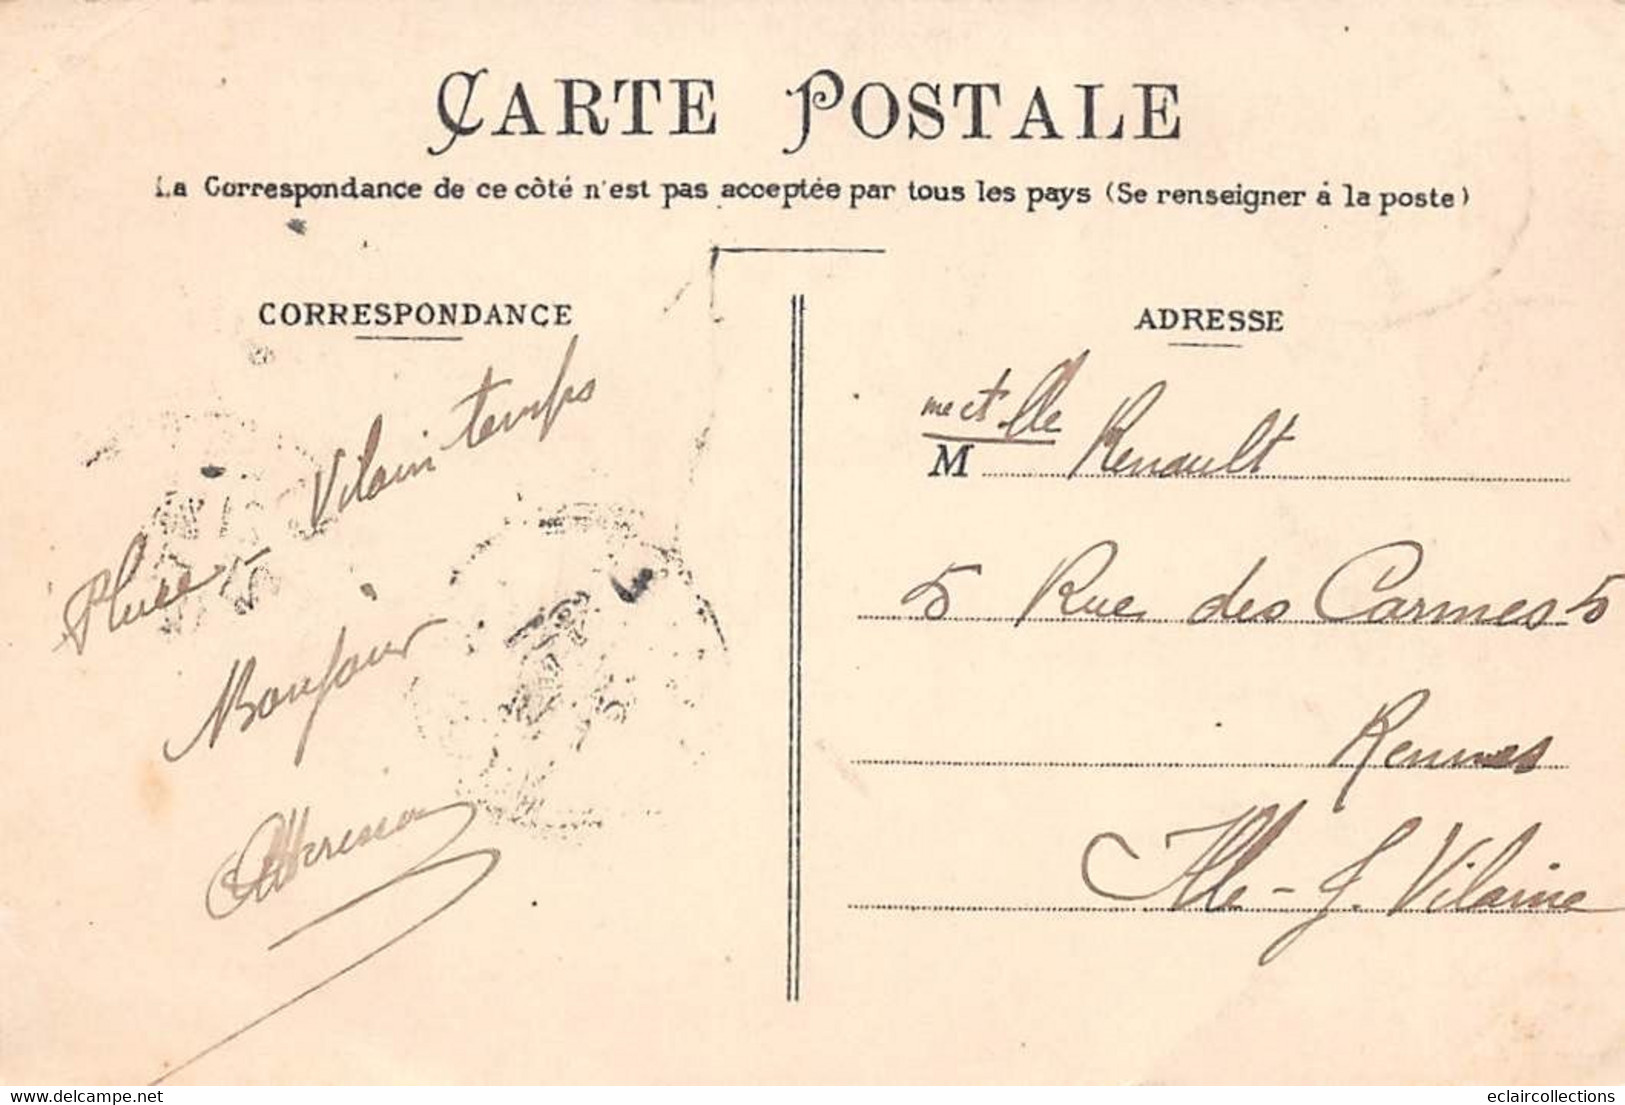 CARTE POSTALE
La Correspondance de ce côté n'est pas acceptée par tous les pays (Se renseigner à la poste)
CORRESPONDANCE
Pluie - Vilain temps
Bonjour
ADRESSE
me et lle
M Renault
5 Rue des Carmes 5
Rennes
Ille-&-Vilaine
eclaircollections